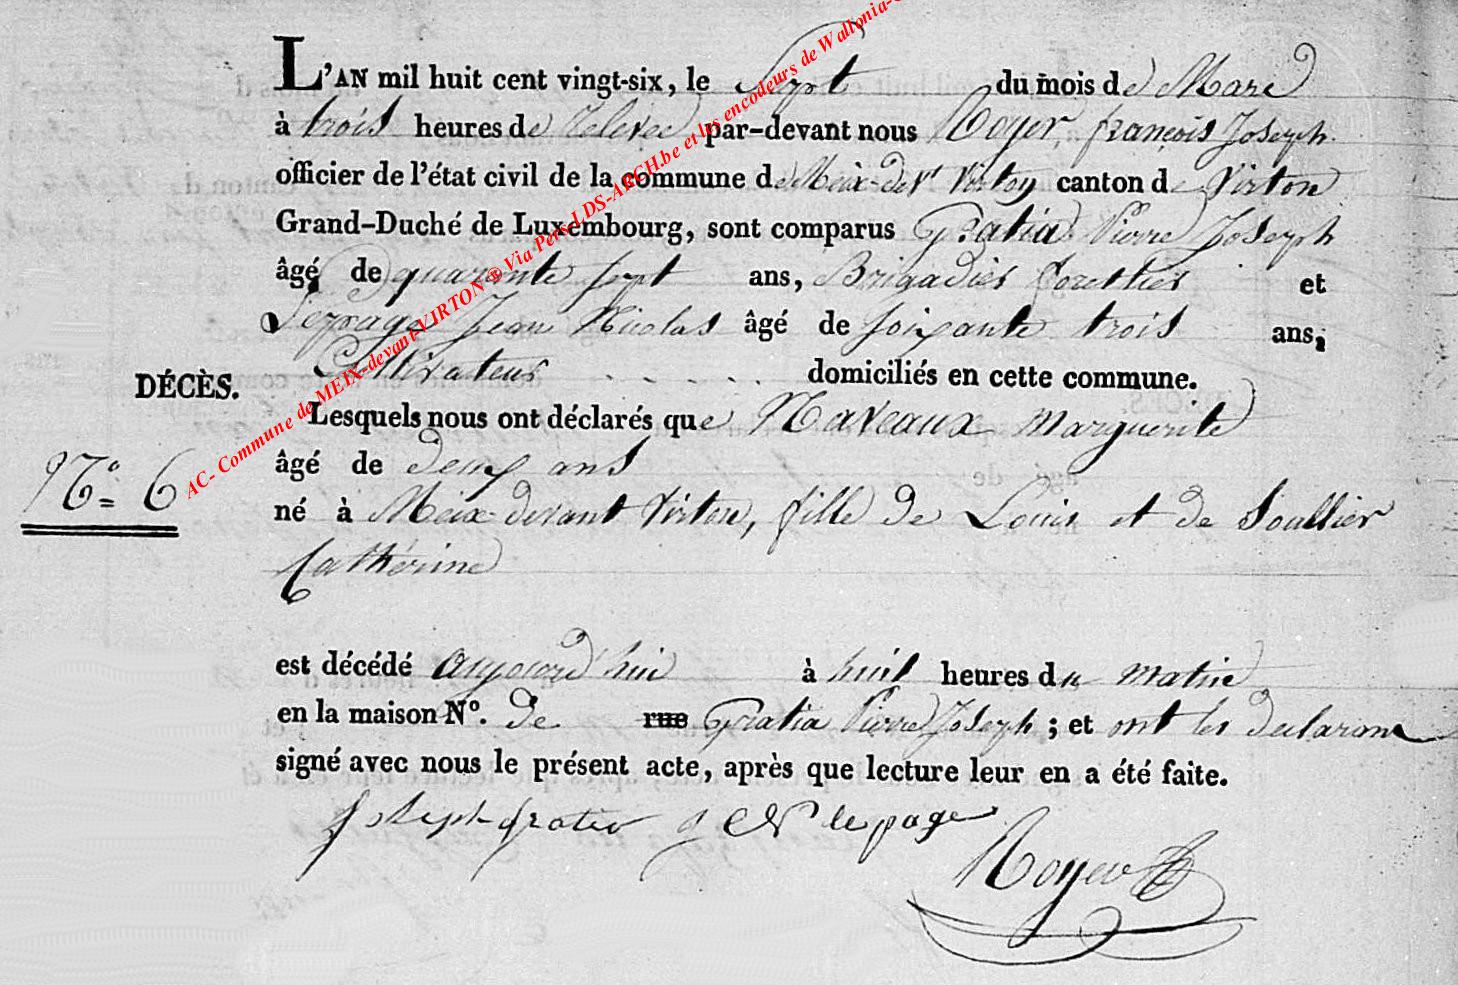 L'AN mil huit cent vingt-six, le Sept du mois de Mars
à trois heures de relevée par-devant nous Royer, françois Joseph
officier de l'état civil de la commune de Meix-devt Virton canton de Virton
Grand-Duché de Luxembourg, sont comparus Gratia Pierre Joseph
âgé de quarante sept ans, Brigadier forettier et
Lepage Jean Nicolas âgé de soixante trois ans,
Cultivateur domiciliés en cette commune.
DÉCÈS.
Lesquels nous ont déclarés que Naveaux Marguerite
âgé de deux ans
No 6
né à Meix devant Virton, fille de Louis et de Soullier
Catherine
est décédé aujourd'hui à huit heures du matin
en la maison No. de rue Gratia Pierre Joseph ; et ont les déclarans
signé avec nous le présent acte, après que lecture leur en a été faite.
Joseph gratia J N lepage
Royer
AC- Commune de MEIX-devant-VIRTON ® Via Pers-LDS-ARCH.be et les encodeurs de Wallonia-